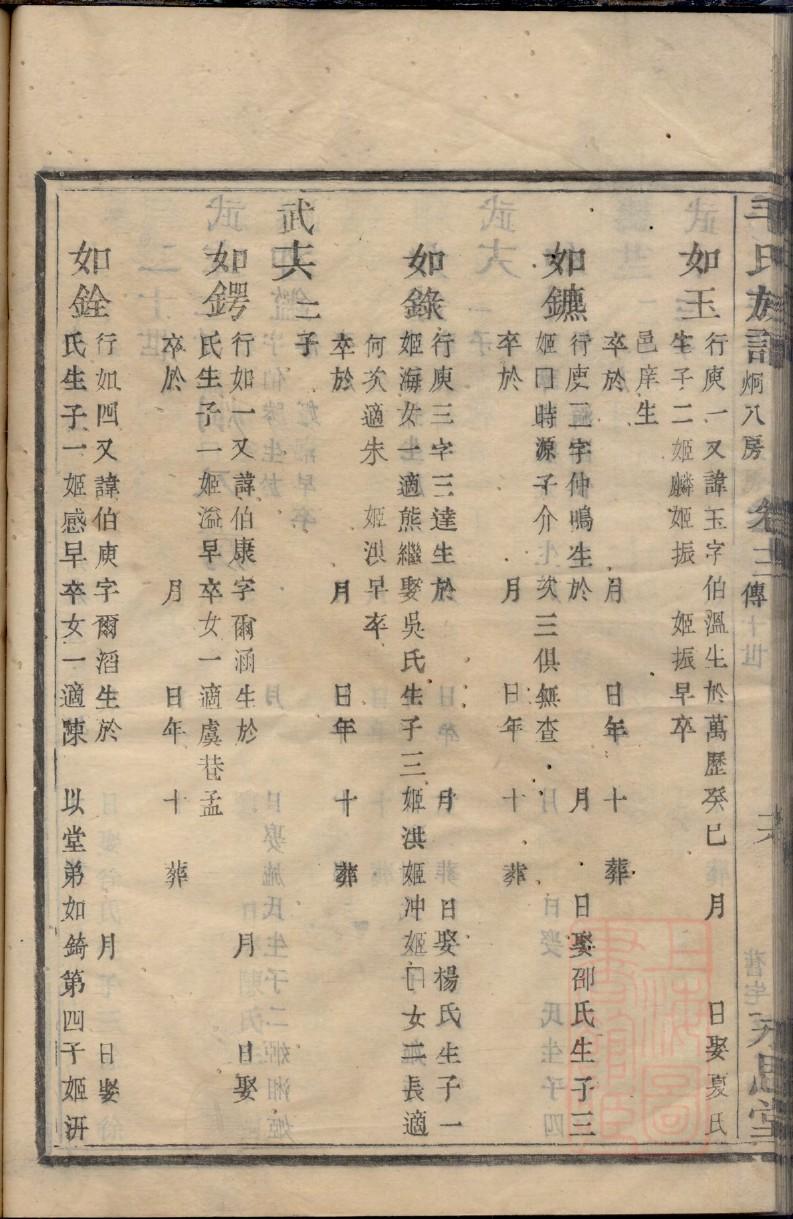 毛氏族譜 炯八房 卷三 傳
如玉
行庚一又諱玉字伯溫生於萬歷癸巳 月 日娶夏氏
生子二姬麟姬振 姬振早卒
邑庠生
卒於 月 日年 十 葬
如鑣
行庚二字仲鳴生於 月 日娶邵氏生子三
姬囗時源子介 次三俱無查
卒於 月 日年 十 葬
如錄
行庚三字三達生於 月 日娶楊氏生子一
姬海女一適熊繼娶吳氏生子三 姬洪姬冲姬囗女二長適
何次適朱 姬洪早卒
卒於 月 日年 十 葬
武夫二子
如鍔
行如一又諱伯康字爾涵生於 月 日娶
氏生子一姬溢早卒女一適虞巷孟
卒於 月 日年 十 葬
如銓
行如四又諱伯庚字爾滔生於 月 日娶
氏生子一姬感早卒女一適陳 以堂弟如錡第四子姬汧